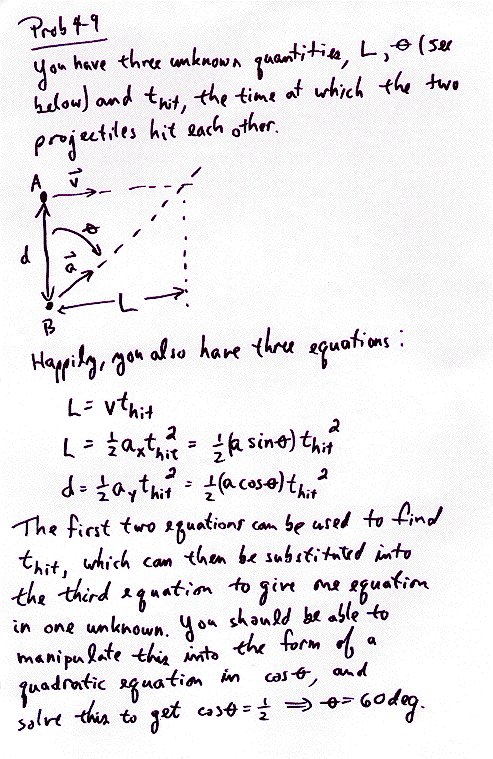 Prob 4-9
You have three unknown quantities, L, θ (see
below) and t_hit, the time at which the two
projectiles hit each other.
A
v⃗
θ
d
a⃗
L
B
Happily, you also have three equations:
L = vt_hit
L = ½ aₓt_hit² = ½(a sinθ) t_hit²
d = ½ a_y t_hit² = ½(a cosθ) t_hit²
The first two equations can be used to find
t_hit, which can then be substituted into
the third equation to give one equation
in one unknown. You should be able to
manipulate this into the form of a
quadratic equation in cosθ, and
solve this to get cosθ = ½ ⇒ θ = 60 deg.